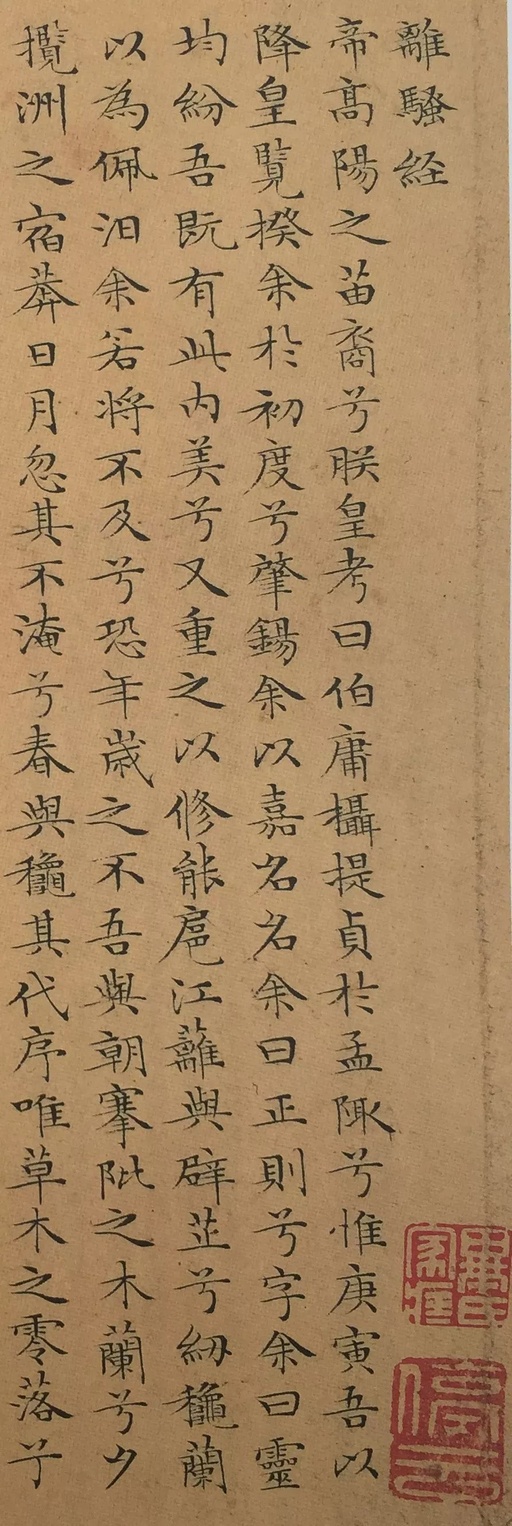 離騷経
帝髙陽之苗裔兮朕皇考曰伯庸攝提貞於孟陬兮惟庚寅吾以
降皇覽揆余於初度兮肇錫余以嘉名名余曰正則兮字余曰靈
均紛吾既有此内美兮又重之以修能扈江蘺與辟芷兮紉龝蘭
以為佩汨余若将不及兮恐年歳之不吾與朝搴阰之木蘭兮夕
攬洲之宿莽日月忽其不淹兮春與龝其代序唯草木之零落兮
停雲